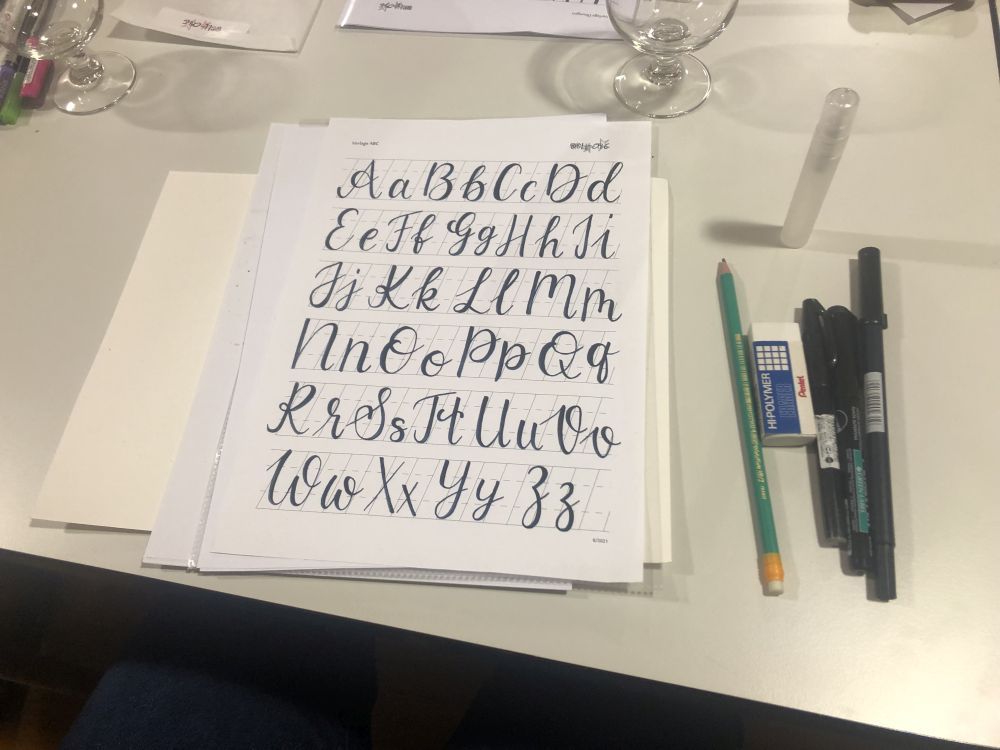 Vorlage ABC
Aa Bb Cc Dd
Ee Ff Gg Hh Ii
Jj Kk Ll Mm
Nn Oo Pp Qq
Rr Ss Tt Uu Vv
Ww Xx Yy Zz
8/2021
HI-POLYMER
ERASER
Pentel